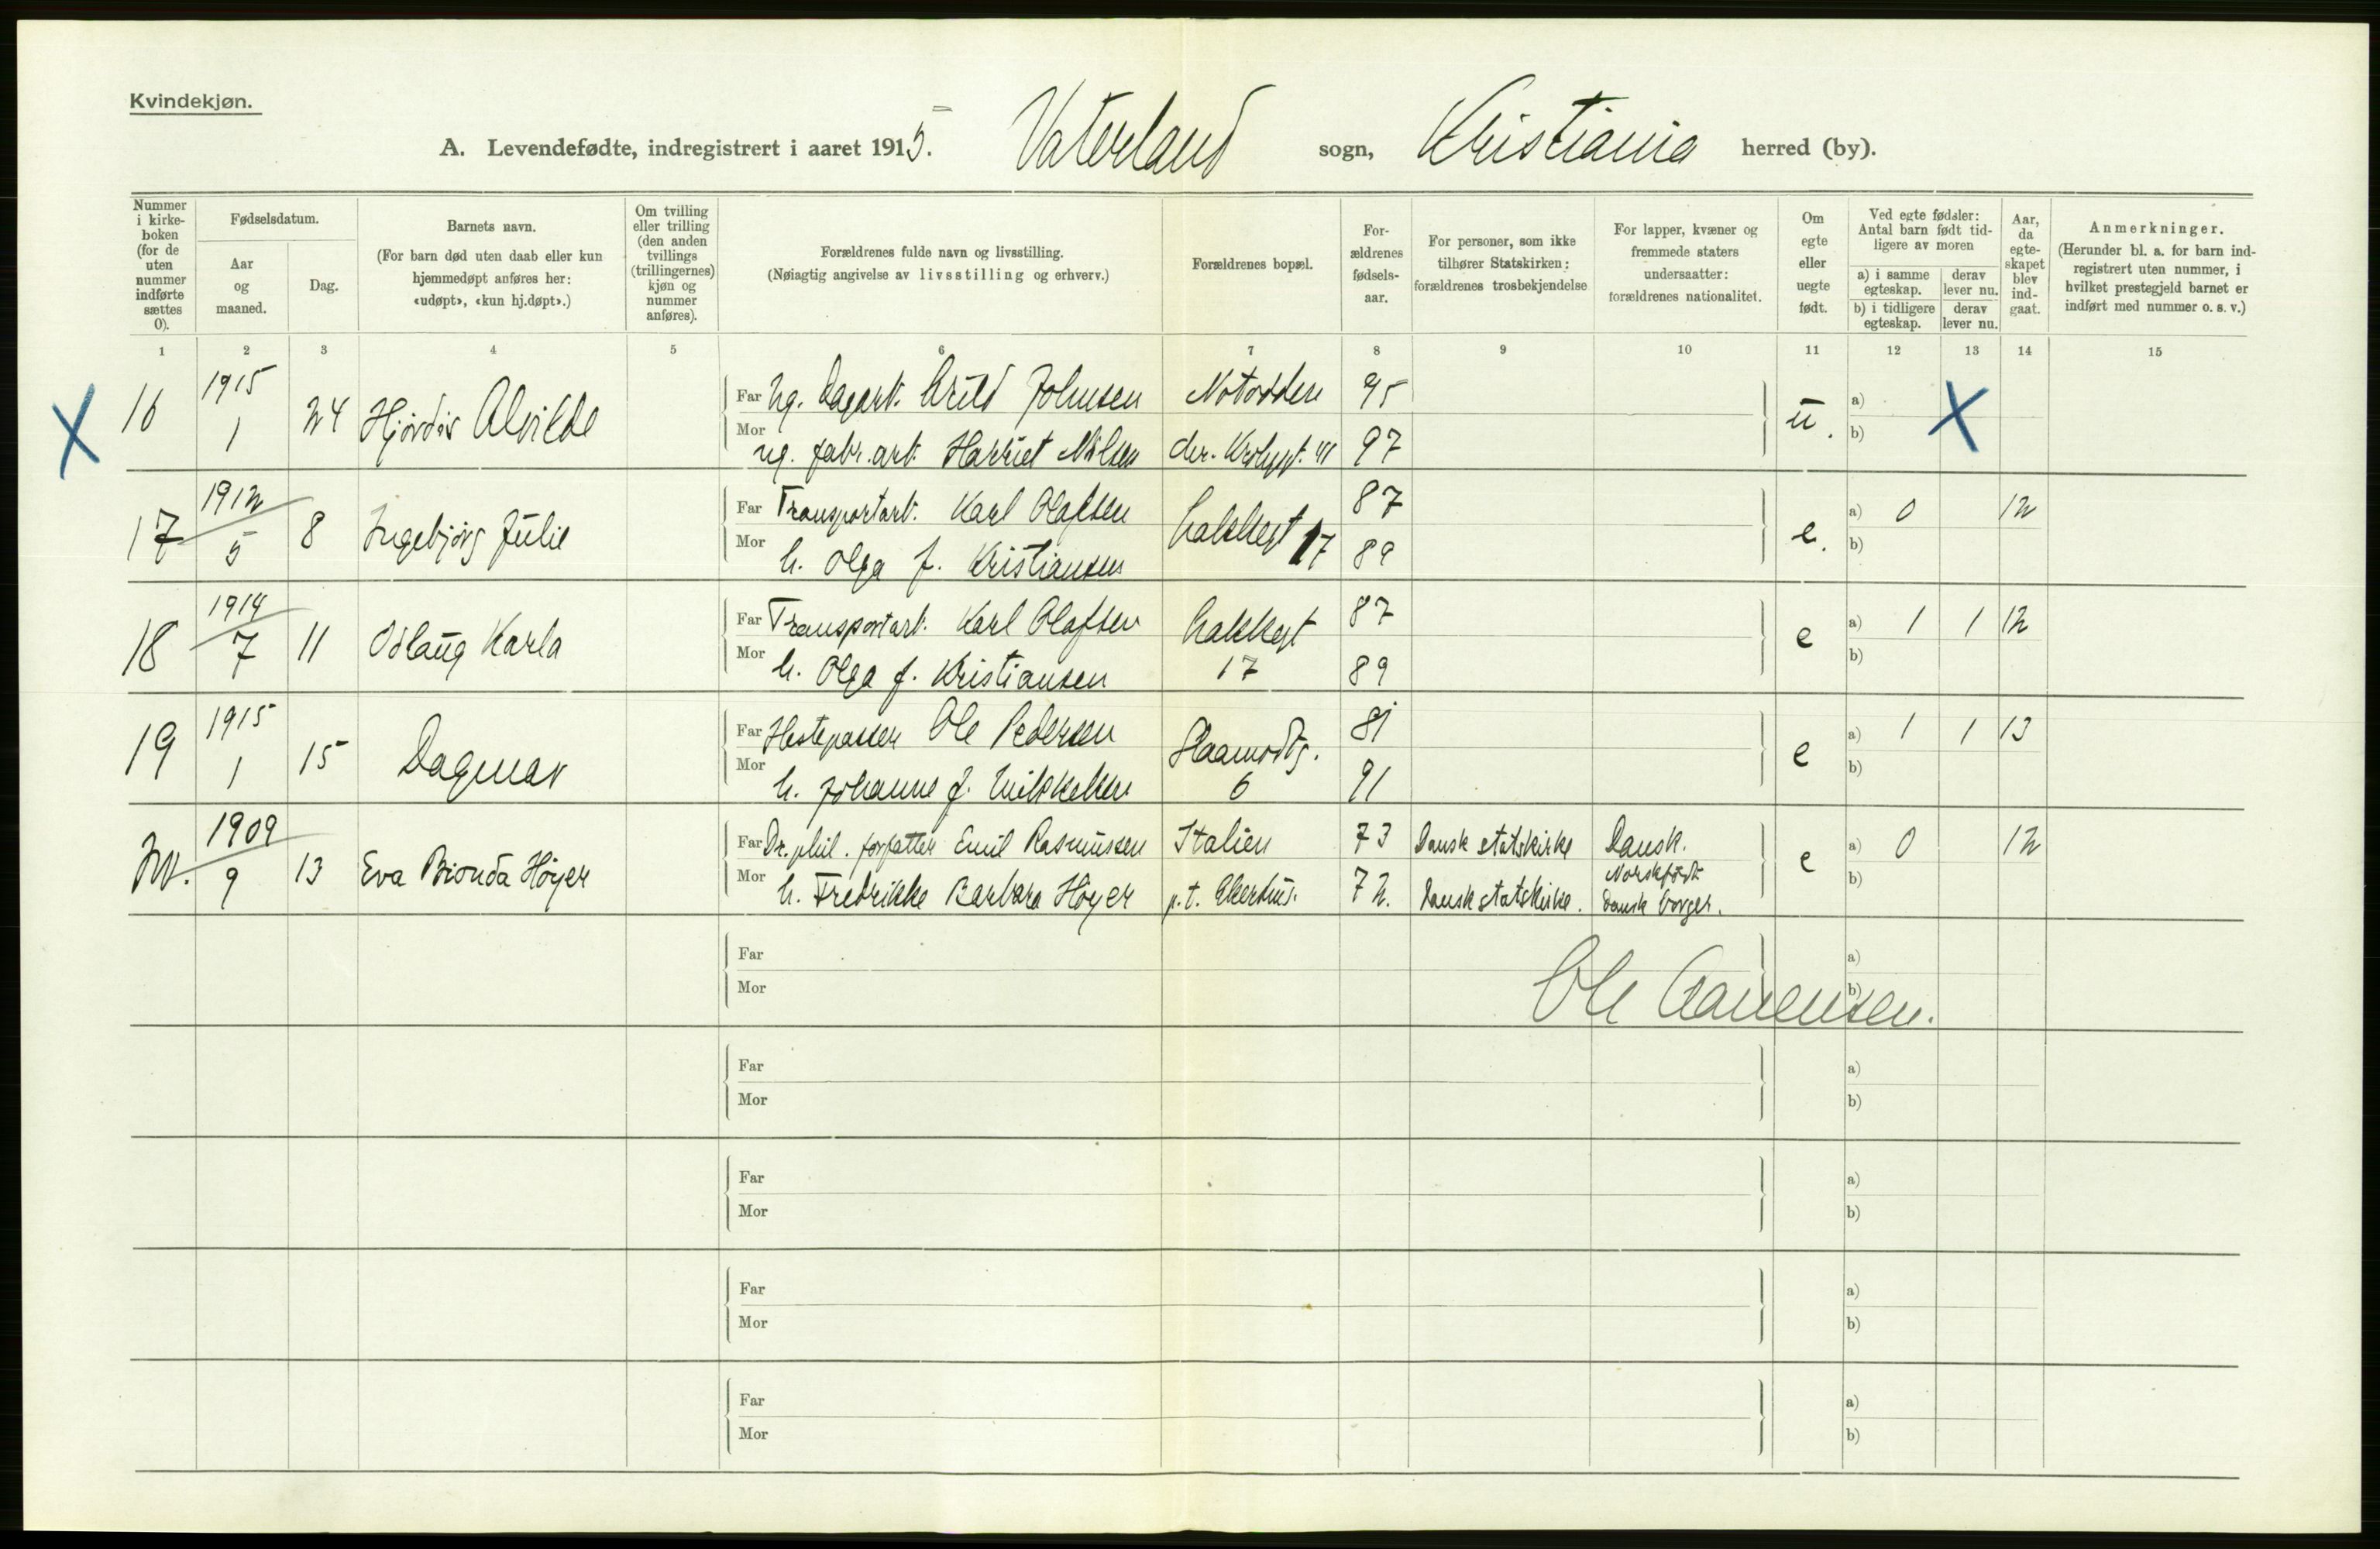 Kvindekjøn.
A. Levendefødte, indregistrert i aaret 1915. Vaterland sogn, Kristiania herred (by).
Nummer i kirke-boken (for de uten nummer indførte sættes 0).
Fødselsdatum.
Aar og maaned.
Dag.
Barnets navn.
(For barn død uten daab eller kun hjemmedøpt anføres her: «udøpt», «kun hj.døpt».)
Om tvilling eller trilling (den anden tvillings (trillingernes) kjøn og nummer anføres).
Forældrenes fulde navn og livsstilling.
(Nøiagtig angivelse av livsstilling og erhverv.)
Forældrenes bopæl.
For-ældrenes fødsels-aar.
For personer, som ikke tilhører Statskirken: forældrenes trosbekjendelse
For lapper, kvæner og fremmede staters undersaatter: forældrenes nationalitet.
Om egte eller uegte født.
Ved egte fødsler: Antal barn født tid-ligere av moren
a) i samme egteskap.
derav lever nu.
b) i tidligere egteskap.
derav lever nu.
Aar, da egte-skapet blev ind-gaat.
Anmerkninger.
(Herunder bl. a. for barn ind-registrert uten nummer, i hvilket prestegjeld barnet er indført med nummer o. s. v.)
1 2 3 4 5 6 7 8 9 10 11 12 13 14 15
X 16 1915 1 24 Hjørdis Alvilde
Far Ug. Dagarb. Arild Johnsen Notodden 95
Mor ug. fabr.arb. Harriet Nilsen 97
u. a) b) X
17 1912 5 8 Ingebjørg Julie
Far Transportarb. Karl Olafsen Lakkegt 17 87
Mor h. Olga f. Kristiansen 89
e. a) 0 12 b)
18 1914 7 11 Oslaug Karla
Far Transportarb. Karl Olafsen Lakkegt 87
Mor h. Olga f. Kristiansen 17 89
e a) 1 1 12 b)
19 1915 1 15 Dagmar
Far Hestepasser Ole Pedersen 81
Mor h. Johanne f. Mikkelsen 6 91
e a) 1 1 13 b)
1909 9 13 Eva Bionda Høyer
Far Dr. phil. forfatter Emil Rasmussen Italien 73 Dansk statskirke Dansk.
Mor h. Fredrikke Barbara Høyer p.t. Akershus. 72. Dansk statskirke. Norskfødt Dansk borger.
e a) 0 12 b)
Far a)
Mor b)
Ole
Far a)
Mor b)
Far a)
Mor b)
Far a)
Mor b)
Far a)
Mor b)